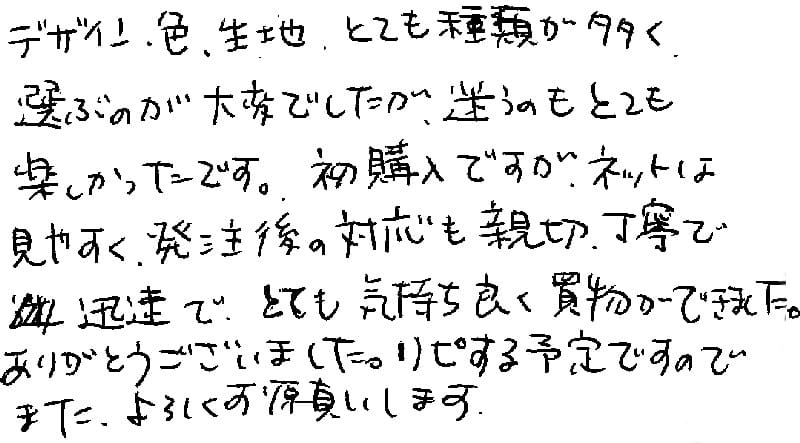 デザイン、色、生地、とても種類が多く、
選ぶのが大変でしたが、迷うのもとても
楽しかったです。初購入ですが、ネットは
見やすく、発注後の対応も親切、丁寧で
迅速で、とても気持ち良く買物ができました。
ありがとうございました。リピする予定ですので
また、よろしくお願いします。